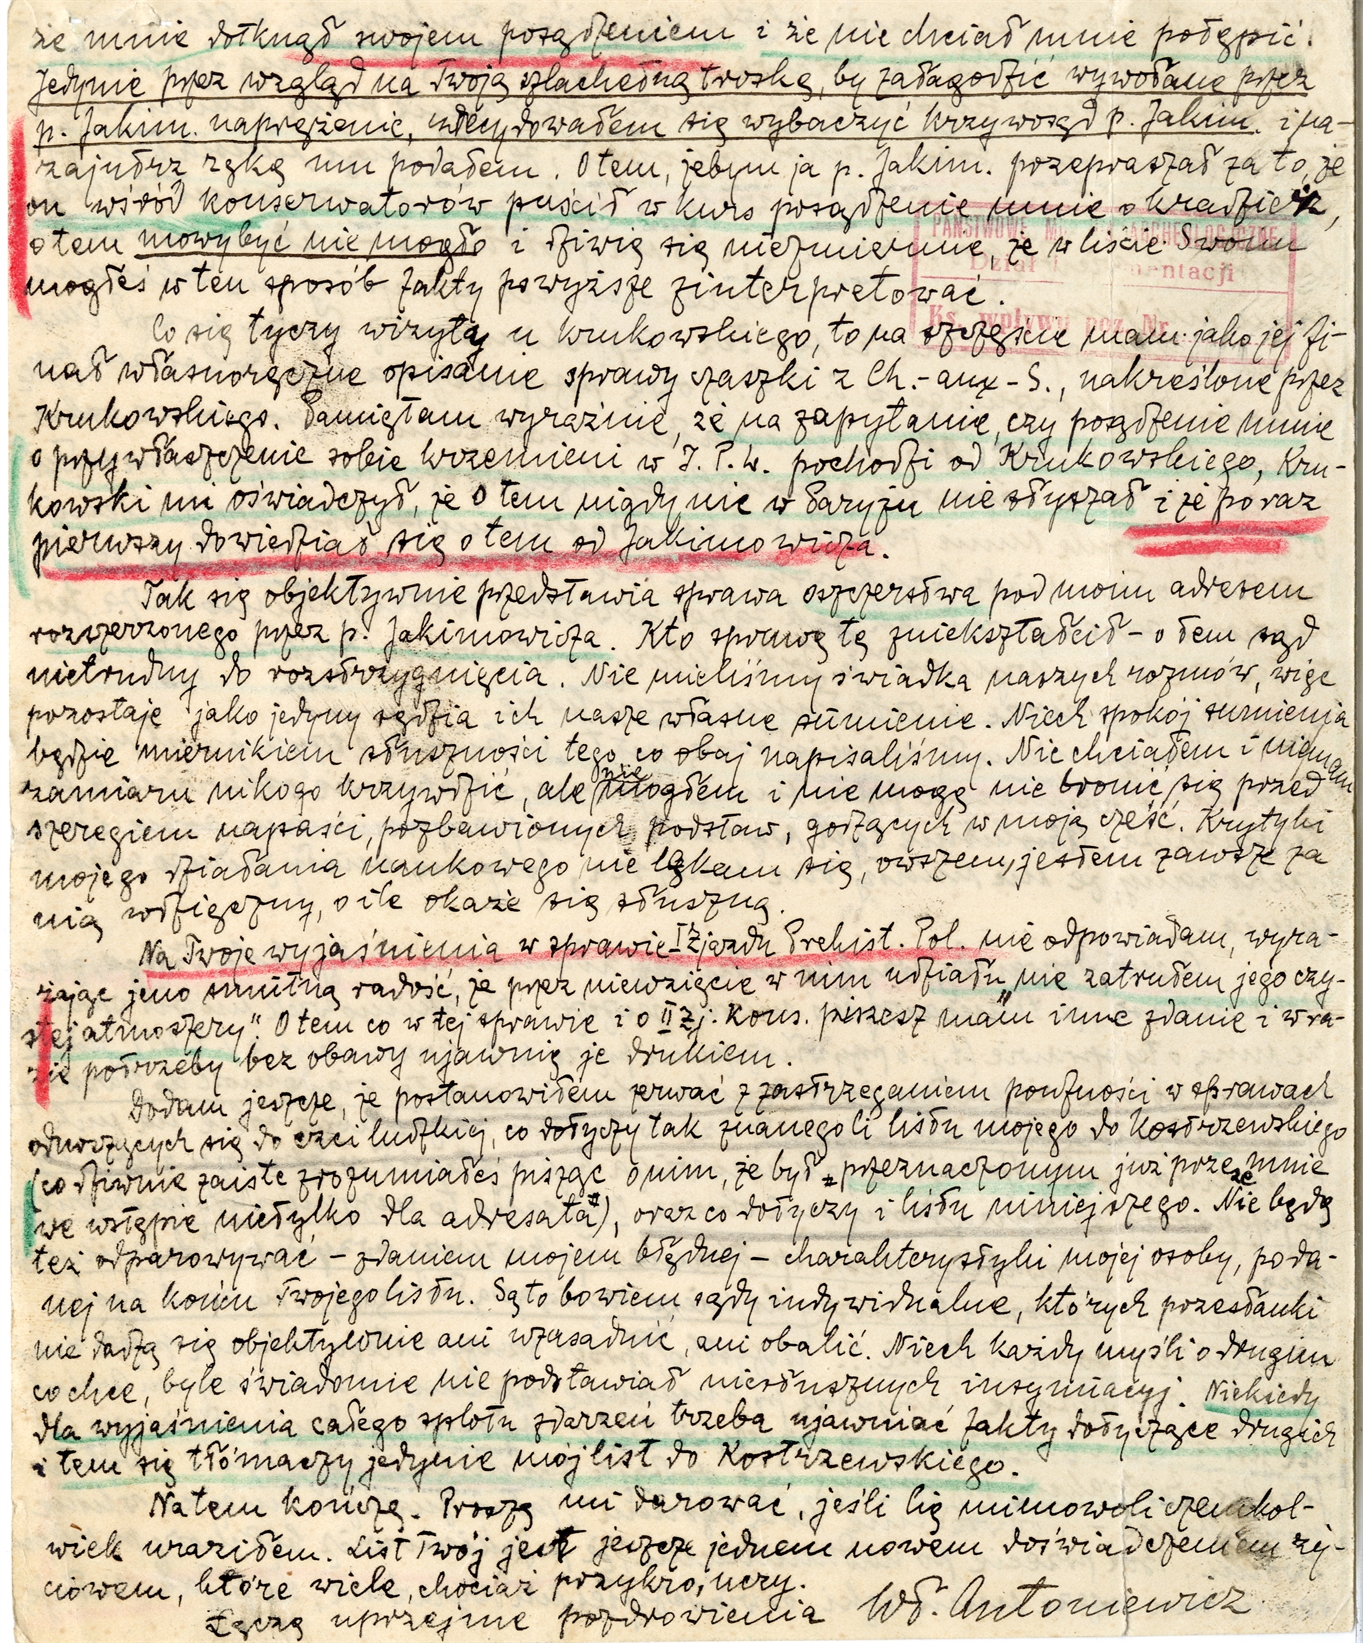 że mnie dotknął swojem posądzeniem i że nie chciał mnie potępić.
Jedynie przez wzgląd na Twoją szlachetną troskę, by załagodzić wywołane przez
p. Jakim. naprężenie, zdecydowałem się wybaczyć krzywosąd p. Jakim. i na-
zajutrz rękę mu podałem. O tem, żebym ja p. Jakim. przepraszał za to, że
on wśród konserwatorów puścił w kurs posądzenie mnie o kradzież,
o tem mowy być nie mogło i dziwię się niezmiernie, że w liście Swoim
mogłeś w ten sposób fakty powyższe zinterpretować.
PAŃSTWOWE MUZEUM ARCHEOLOGICZNE
Dział Dokumentacji
Ks. wpływu poz. Nr
Co się tyczy wizyty u Krukowskiego, to na szczęście mam jako jej fi-
nał własnoręczne opisanie sprawy czaszki z Ch.-aux-S., nakreślone przez
Krukowskiego. Pamiętam wyraźnie, że na zapytanie, czy posądzenie mnie
o przywłaszczenie sobie krzemieni w I. P. W. pochodzi od Krukowskiego, Kru-
kowski mi oświadczył, że o tem nigdy nic w Paryżu nie słyszał i że poraz
pierwszy dowiedział się o tem od Jakimowicza.
Tak się objektywnie przedstawia sprawa oszczerstwa pod moim adresem
rozszerzonego przez p. Jakimowicza. Kto sprawę tę zniekształcił – o tem sąd
nietrudny do rozstrzygnięcia. Nie mieliśmy świadka naszych rozmów, więc
pozostaje jako jedyny sędzia ich nasze własne sumienie. Niech spokój sumienia
będzie miernikiem słuszności tego, co obaj napisaliśmy. Nie chciałem i nie mam
zamiaru nikogo krzywdzić, ale nie mogłem i nie mogę nie bronić się przed
szeregiem napaści, pozbawionych podstaw, godzących w moją cześć. Krytyki
mojego działania naukowego nie lękam się, owszem, jestem zawsze za
nią wdzięczny, o ile okaże się słuszną.
Na Twoje wyjaśnienia w sprawie I Zjazdu Prehist. Pol. nie odpowiadam, wyra-
żając jeno smutną radość, że przez niewzięcie w nim udziału nie zatrułem jego czy-
stej atmosfery". O tem co w tej sprawie i o II Zj. Kons. piszesz mam inne zdanie i w ra-
zie potrzeby bez obawy ujawnię je drukiem.
Dodam jeszcze, że postanowiłem zerwać z zastrzeganiem poufności w sprawach
odnoszących się do czci ludzkiej, co dotyczy tak znanego Ci listu mojego do Kostrzewskiego
(co dziwnie zaiste zrozumiałeś pisząc o nim, że był „przeznaczonym już przeze mnie
we wstępie nietylko dla adresata"), oraz co dotyczy i listu niniejszego. Nie będę
też odparowywać – zdaniem mojem błędnej – charakterystyki mojej osoby, poda-
nej na końcu Twojego listu. Są to bowiem sądy indywidualne, których przesłanki
nie dadzą się objektywnie ani uzasadnić, ani obalić. Niech każdy myśli o drugim
co chce, byle świadomie nie podstawiał niesłusznych insynuacyj. Niekiedy
dla wyjaśnienia całego splotu zdarzeń trzeba ujawniać fakty dotyczące drugich
i tem się tłómaczy jedynie mój list do Kostrzewskiego.
Na tem kończę. Proszę mi darować, jeśli Cię mimowoli czemkol-
wiek uraziłem. List Twój jest jeszcze jednem nowem doświadczeniem ży-
ciowem, które wiele, chociaż przykro, uczy.
Łączę uprzejme pozdrowienia Wł. Antoniewicz